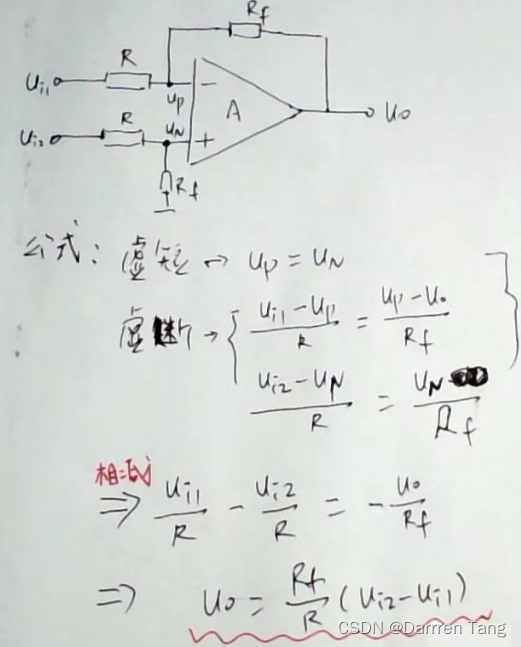 Rf
R
Ui1
up
−
A
Uo
R
Ui2
uN
+
Rf
公式: 虚短 → up = uN
虚断 → { (ui1 − up)/R = (up − uo)/Rf
(ui2 − uN)/R = uN/Rf
相减
⇒ ui1/R − ui2/R = − uo/Rf
⇒ uo = Rf/R (ui2 − ui1)
CSDN @Darrren Tang